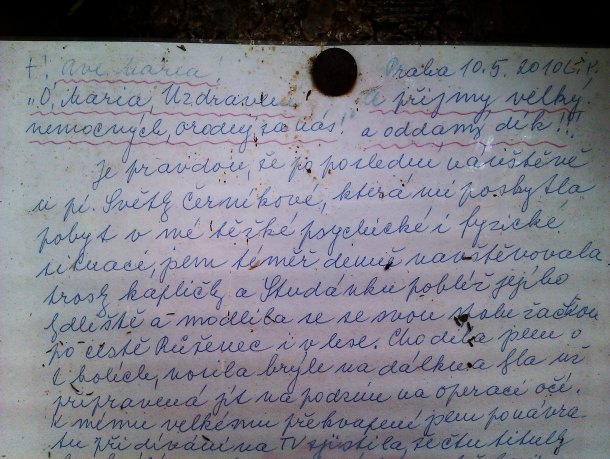 +! Ave Maria! Praha 10.5. 2010
"Ó, Maria, Uzdravení a přijmy velký
nemocných, oroduj za nás! a oddaný dík!!
Je pravdou, že po poslední návštěvě
u pí. Světly Černíkové, která mi poskytla
pobyt v mé těžké psychické i fyzické
situaci, jsem téměř denně navštěvovala
trosky kapličky a Studánku poblíž jejího
bydliště a modlila se se svou
po cestě Růženec i v lese. Chodila jsem o
2 holích, nosila brýle na dálku a šla už
připravená jít na podzim na operaci očí.
K mému velkému překvapení jsem po návra-
tu při dívání na TV zjistila, že čtu titulky